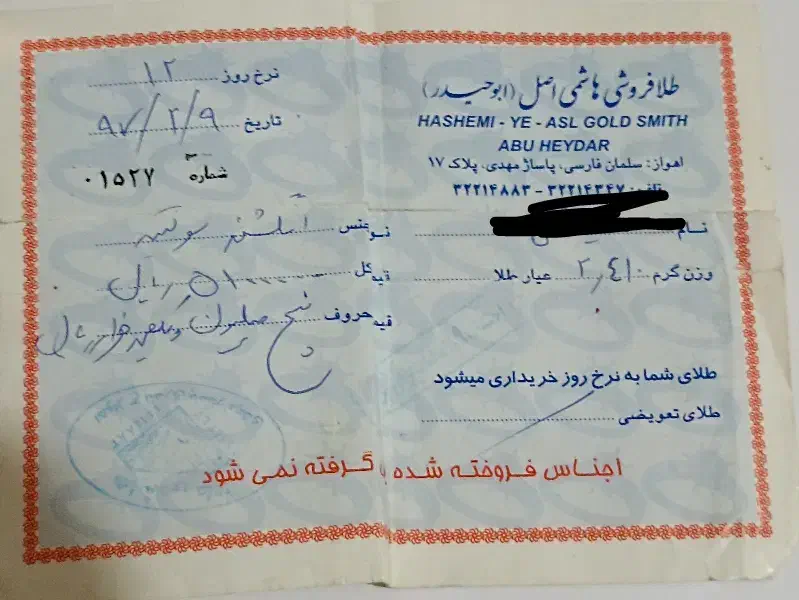 طلافروشی هاشمی اصل (ابوحیدر)
HASHEMI - YE - ASL GOLD SMITH
ABU HEYDAR
اهواز: سلمان فارسی، پاساژ مهدی، پلاک ۱۷
۳۲۲۱۴۳۴۷ - ۳۲۲۱۴۸۸۳
نرخ روز ۱۲
تاریخ ۹۷/۲/۹
شماره ۰۱۵۲۷
نام
نوع جنس
وزن گرم ۲٫۴۱۰ عیار طلا
قیمت کل ریال
قیمت حروف پنج میلیون و هزار ریال
طلای شما به نرخ روز خریداری میشود
طلای تعویضی
اجناس فروخته شده گرفته نمی شود